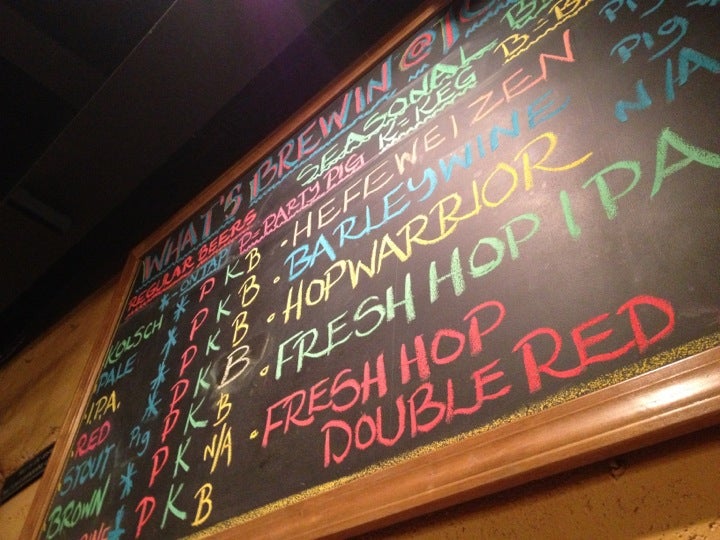 WHAT'S BREWIN @
REGULAR BEERS
* = ON TAP P = PARTY PIG K = KEG B = B
SEASONAL
KOLSCH * P K B
PALE * P K B
I.P.A. * P K B
RED * P K B
STOUT Pig P K B
BROWN * P K N/A
P K B
• HEFEWEIZEN Pig
• BARLEYWINE Pig
• HOPWARRIOR N/A
• FRESH HOP IPA
• FRESH HOP
DOUBLE RED